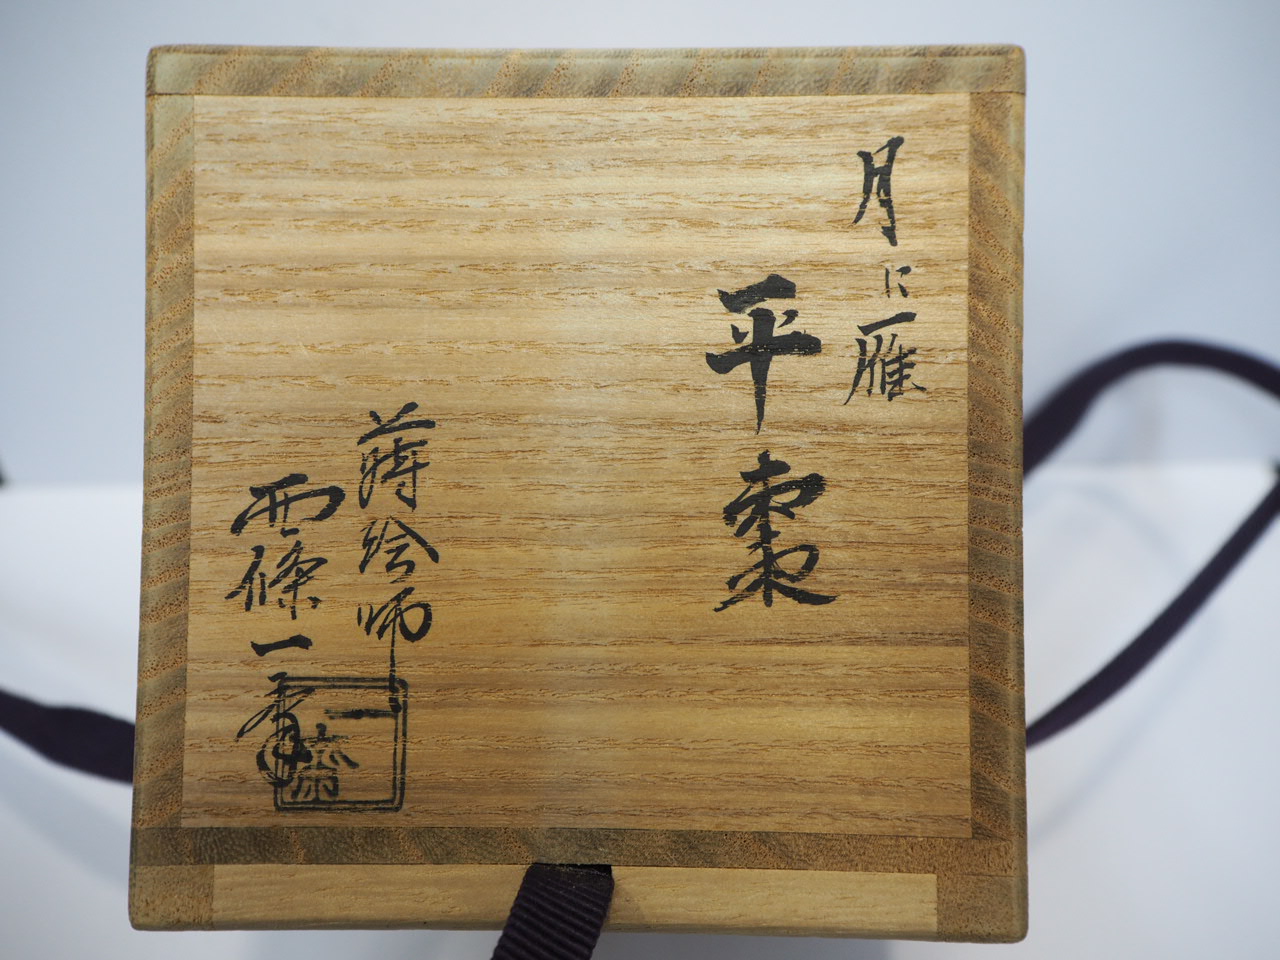 月に雁
平棗
蒔絵師
西條一斎
一斎